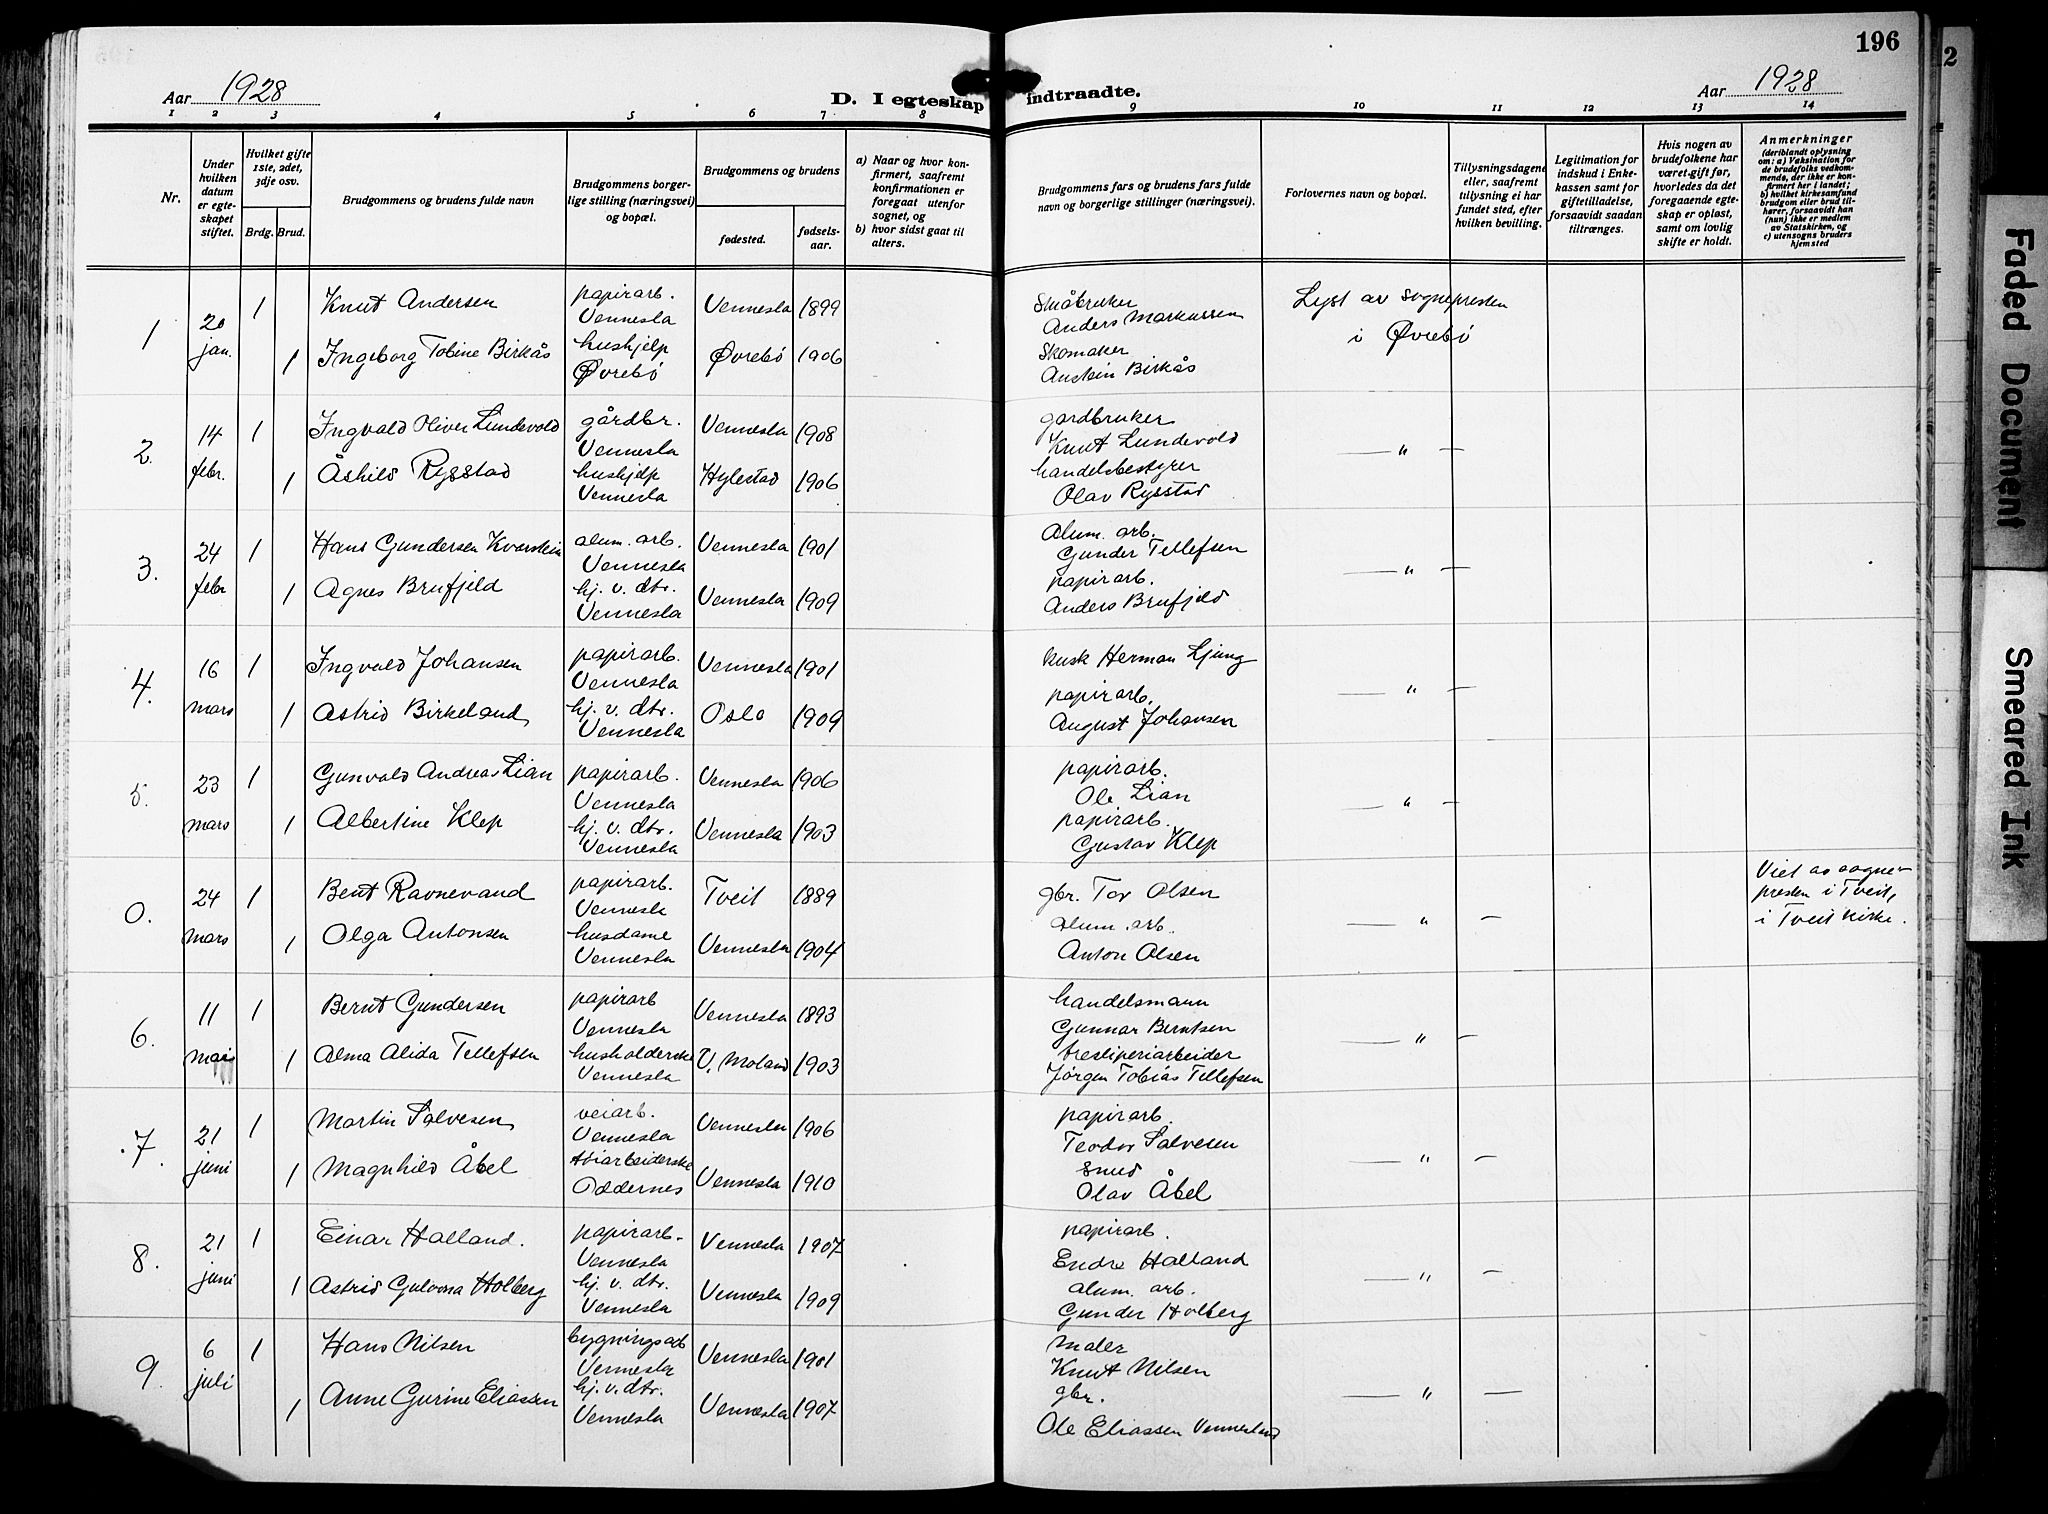 196
2
Aar 1928
D. I egteskap indtraadte.
Aar 1928
1 2 3 4 5 6 7 8 9 10 11 12 13 14
Nr.
Under hvilken datum er egteskapet stiftet.
Hvilket gifte 1ste, 2det, 3dje osv.
Brdg. Brud.
Brudgommens og brudens fulde navn
Brudgommens borgerlige stilling (næringsvei) og bopæl.
Brudgommens og brudens
fødested.
fødselsaar.
a) Naar og hvor konfirmert, saafremt konfirmationen er foregaat utenfor sognet, og
b) hvor sidst gaat til alters.
Brudgommens fars og brudens fars fulde navn og borgerlige stillinger (næringsvei).
Forlovernes navn og bopæl.
Tillysningsdagene eller, saafremt tillysning ei har fundet sted, efter hvilken bevilling.
Legitimation for indskud i Enkekassen samt for giftetilladelse, forsaavidt saadan tiltrænges.
Hvis nogen av brudefolkene har været gift før, hvorledes da det foregaaende egteskap er opløst, samt om lovlig skifte er holdt.
Anmerkninger
(deriblandt oplysning om: a) Vaksination for de brudefolks vedkommende, der ikke er konfirmert her i landet; b) hvilket kirkesamfund brudgom eller brud tilhører, forsaavidt han (hun) ikke er medlem av Statskirken, og c) utensogns bruders hjemsted
1 20 jan. 1 Knut Andersen papirarb. Vennesla Vennesla 1899 Småbruker Anders Markussen Lyst av sognepresten i Øvrebø
1 Ingeborg Tobine Birkås hushjelp Øvrebø Øvrebø 1906 Skomaker Anstein Birkås
2. 14 febr. 1 Ingvald Oliver Lundevold gårdbr. Vennesla Vennesla 1908 gardbruker Knut Lundevold — " —
1 Åshild Rysstad hushjelp Vennesla Hylestad 1906 handelsbestyrer Olav Rysstad
3. 24 febr 1 Hans Gundersen Kverstein alum. arb. Vennesla Vennesla 1901 Alum. arb. Gunder Tellefsen — " —
1 Agnes Brufjeld hj. v. dtr. Vennesla Vennesla 1909 papirarb. Anders Brufjeld
4. 16 mars 1 Ingvald Johansen papirarb. Vennesla Vennesla 1901 kusk Herman Ljung — " —
1 Astrid Birkeland hj. v. dtr. Vennesla Oslo 1909 papirarb. August Johansen
5. 23 mars 1 Gunvald Andreas Lian papirarb. Vennesla Vennesla 1906 papirarb. Ole Lian — " —
1 Albertine Klep hj. v. dtr. Vennesla Vennesla 1903 papirarb. Gustav Klep
0. 24 mars 1 Bent Ravnevand papirarb. Vennesla Tveit 1889 gbr. Tor Olsen — " — Viet av sognepresten i Tveit, i Tveit kirke.
1 Olga Antonsen husdame Vennesla Vennesla 1904 alum. arb. Anton Olsen
6. 11 mai 1 Bernt Gundersen papirarb Vennesla Vennesla 1893 handelsmann Gunnar Berntsen — " —
1 Alma Alida Tellefsen husholderske Vennesla V. Moland 1903 tresliperiarbeider Jörgen Tobias Tellefsen
7. 21 juni 1 Martin Salvesen veiarb. Vennesla Vennesla 1906 papirarb. Teodor Salvesen — " —
1 Magnhild Åbel Oddernes Vennesla 1910 Smed Olav Åbel
8. 21 juni 1 Einar Halland. papirarb. Vennesla Vennesla 1907 papirarb. Endre Halland — " —
1 Astrid Gulovna Holberg hj. v. dtr. Vennesla Vennesla 1909 alum. arb. Gunder Holberg
9. 6 juli 1 Hans Nilsen bygningsarb Vennesla Vennesla 1901 Maler Knut Nilsen — " —
1 Anne Gurine Eliassen hj. v. dtr. Vennesla Vennesla 1907 gbr. Ole Eliassen Vennesland
Faded Document
Smeared Ink